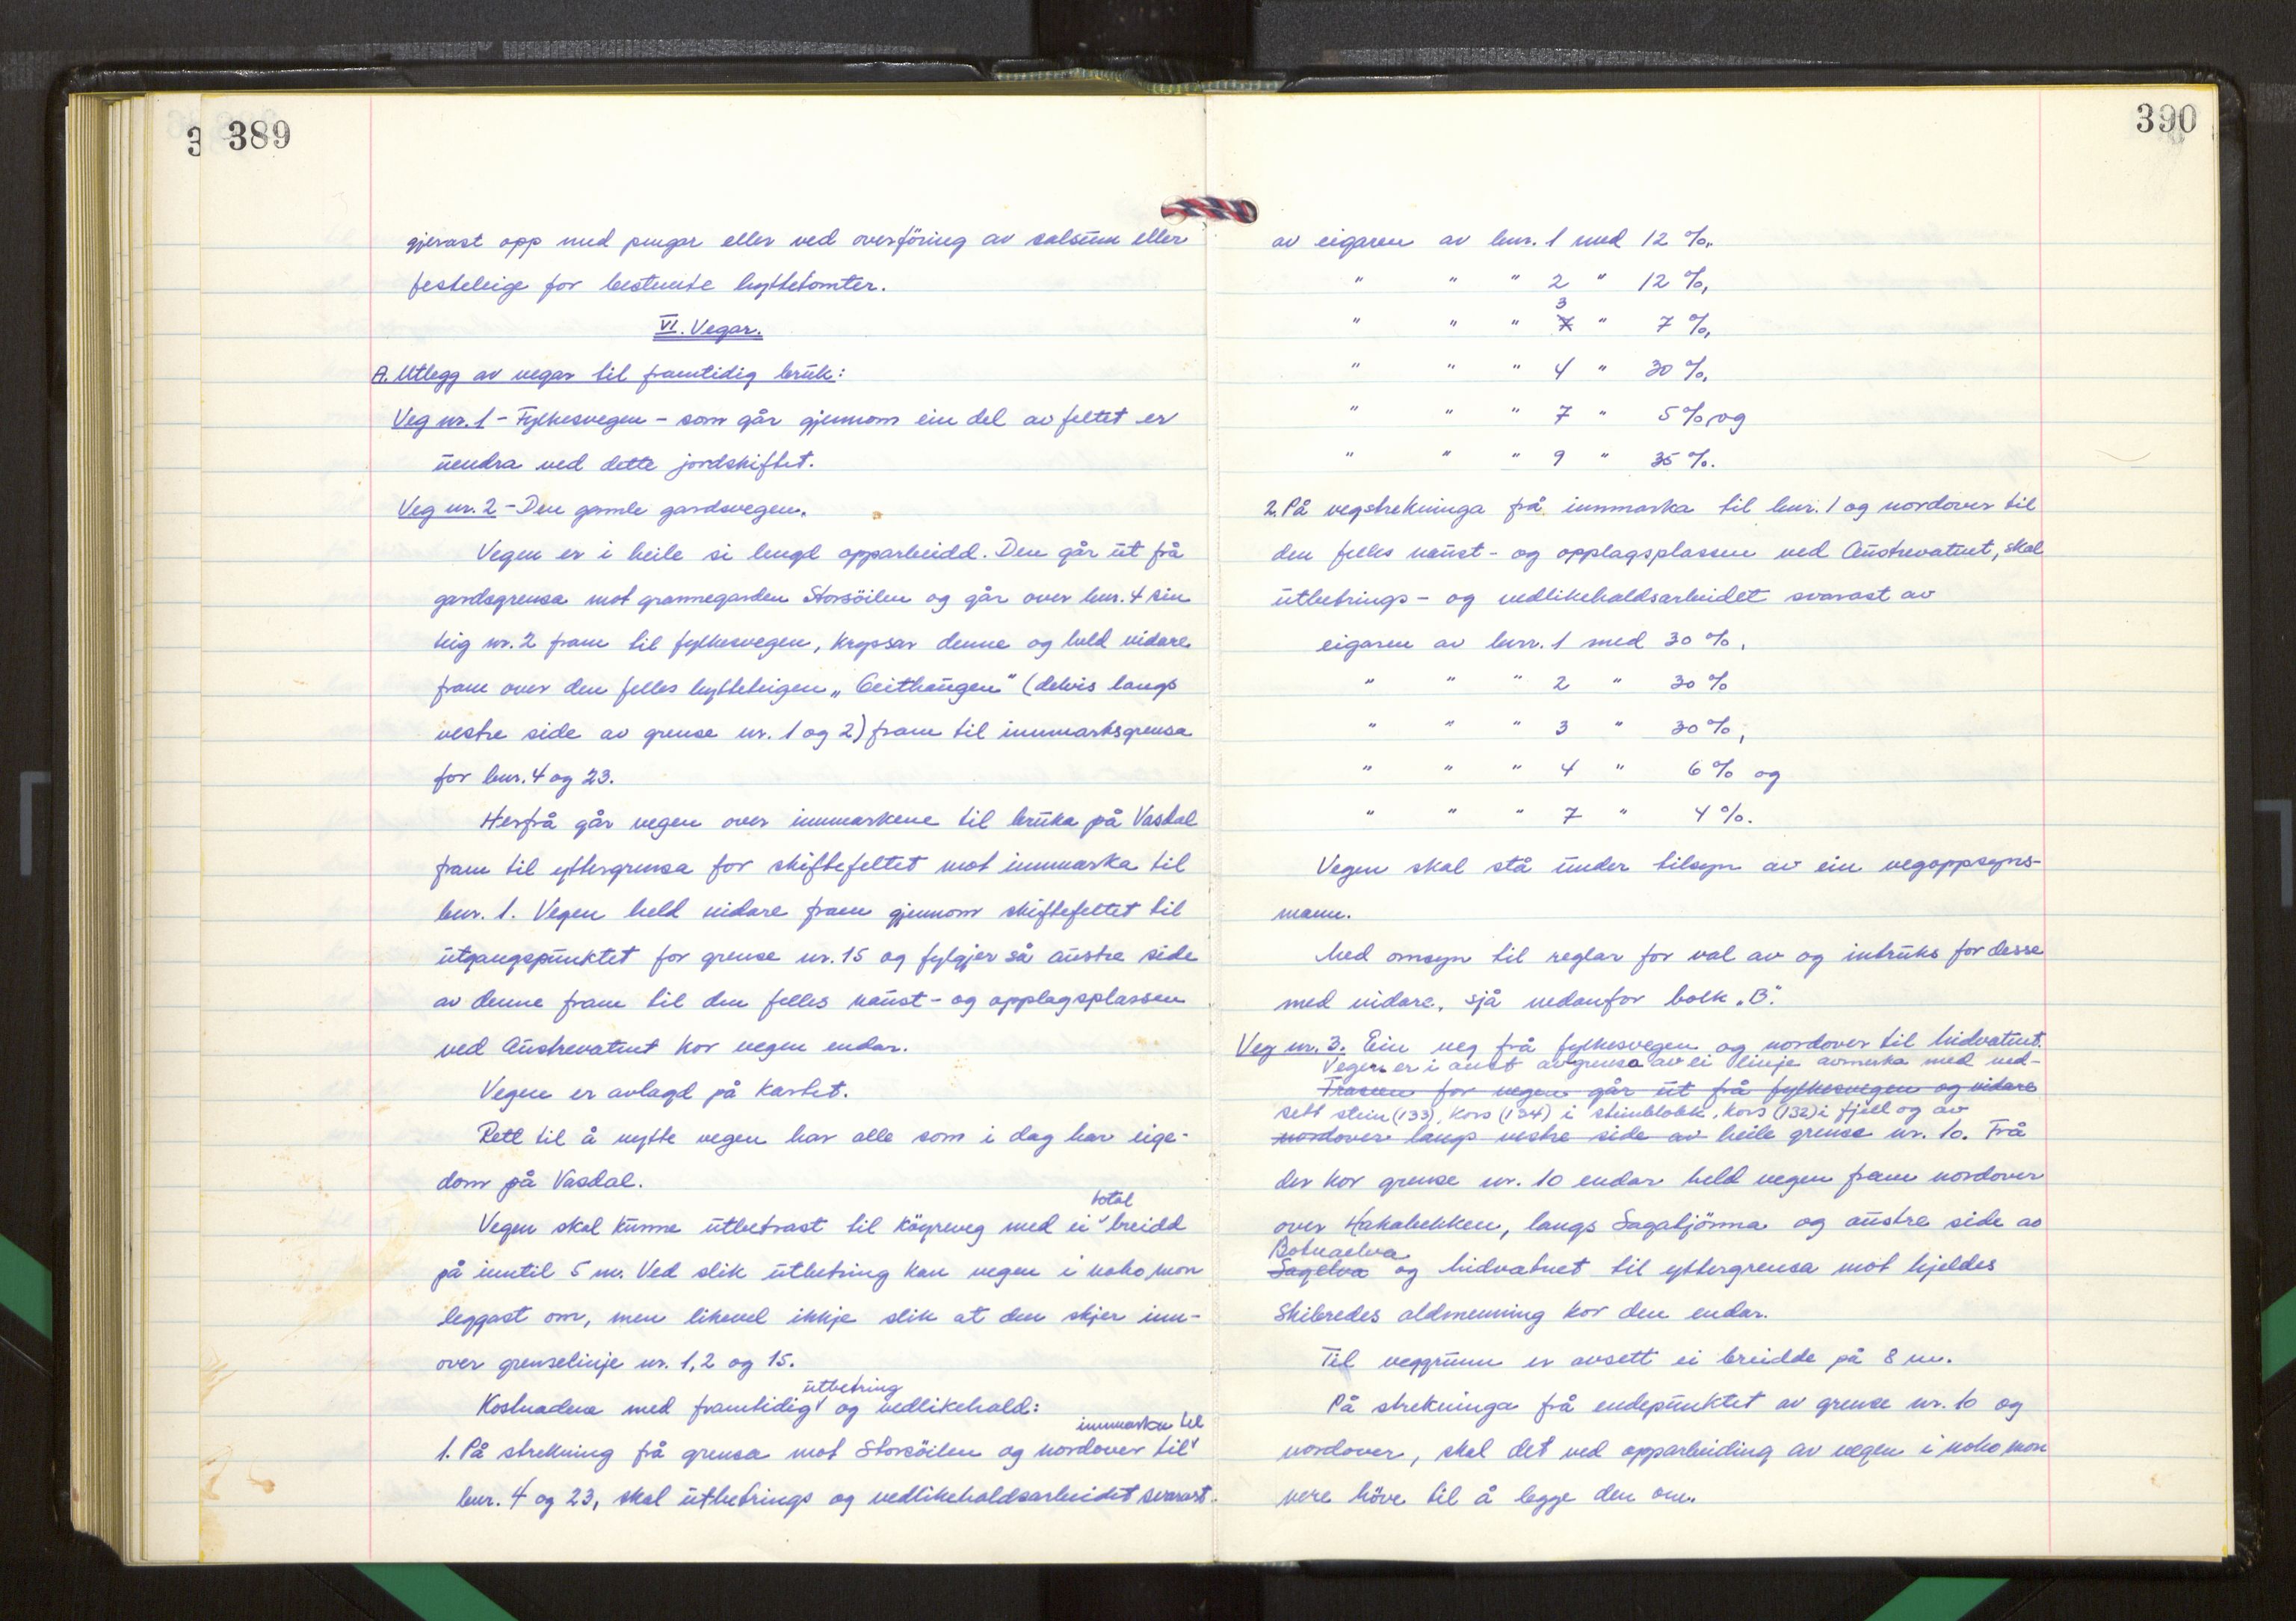 389
gjerast opp med pengar eller ved overföring av salsum eller
festeleige for bestemte hyttetomter.
VI. Vegar.
A. Utlegg av vegar til framtidig bruk:
Veg nr. 1 - Fylkesvegen - som går gjennom ein del av feltet er
uendra ved dette jordskiftet.
Veg nr. 2 - Den gamle gardsvegen.
Vegen er i heile si lengd opparbeidd. Den går ut frå
gardsgrensa mot grannegarden Storsöilen og går over bnr. 4 sin
teig nr. 2 fram til fylkesvegen, kryssar denne og held vidare
fram over den felles hytteteigen „Geithaugen" (delvis langs
vestre side av grense nr. 1 og 2) fram til innmarksgrensa
for bnr. 4 og 23.
Herfrå går vegen over innmarkene til bruka på Vasdal
fram til yttergrensa for skiftefeltet mot innmarka til
bnr. 1. Vegen held vidare fram gjennom skiftefeltet til
utgangspunktet for grense nr. 15 og fylgjer så austre side
av denne fram til den felles naust- og opplagsplassen
ved Austrevatnet kor vegen endar.
Vegen er avlagd på kartet.
Rett til å nytte vegen har alle som i dag har eige-
dom på Vasdal.
total
Vegen skal kunne utbetrast til köyreveg med ei breidd
på inntil 5 m. Ved slik utbetring kan vegen i noko mon
leggast om, men likevel ikkje slik at den skjer inn-
over grenselinje nr. 1, 2 og 15.
utbetring
Kostnadene med framtidig og vedlikehald:
innmarka til
1. På strekning frå grensa mot Storsöilen og nordover til
bnr. 4 og 23, skal utbetrings og vedlikehaldsarbeidet svarast
390
av eigaren av bnr. 1 med 12 %,
" " " 2 " 12 %,
3
" " " 7 " 7 %,
" " " 4 " 30 %,
" " " 7 " 5 % og
" " " 9 " 35 %.
2. På vegstrekninga frå innmarka til bnr. 1 og nordover til
den felles naust- og opplagsplassen ved Austrevatnet, skal
utbetrings- og vedlikehaldsarbeidet svarast av
eigaren av bnr. 1 med 30 %,
" " " 2 " 30 %
" " " 3 " 30 %,
" " " 4 " 6 % og
" " " 7 " 4 %.
Vegen skal stå under tilsyn av ein vegoppsyns-
mann.
Med omsyn til reglar for val av og intruks for desse
med vidare, sjå nedanfor bolk „B".
Veg nr. 3. Ein veg frå fylkesvegen og nordover til Midvatnet.
Vegen er i aust avgrensa av ei linje avmerka med ned-
Traseen for vegen går ut frå fylkesvegen og vidare
sett stein (133), kors (134) i steinblokk, kors (132) i fjell og av
nordover langs vestre side av heile grense nr. 10. Frå
der kor grense nr. 10 endar held vegen fram nordover
over Hakabekken, langs Sagatjönna og austre side av
Botnaelva
Sagelva og Midvatnet til yttergrensa mot Hjeldes
Skibredes aldmenning kor den endar.
Til veggrunn er avsett ei breidde på 8 m.
På strekninga frå endepunktet av grense nr. 10 og
nordover, skal det ved opparbeiding av vegen i noko mon
vere höve til å legge den om.